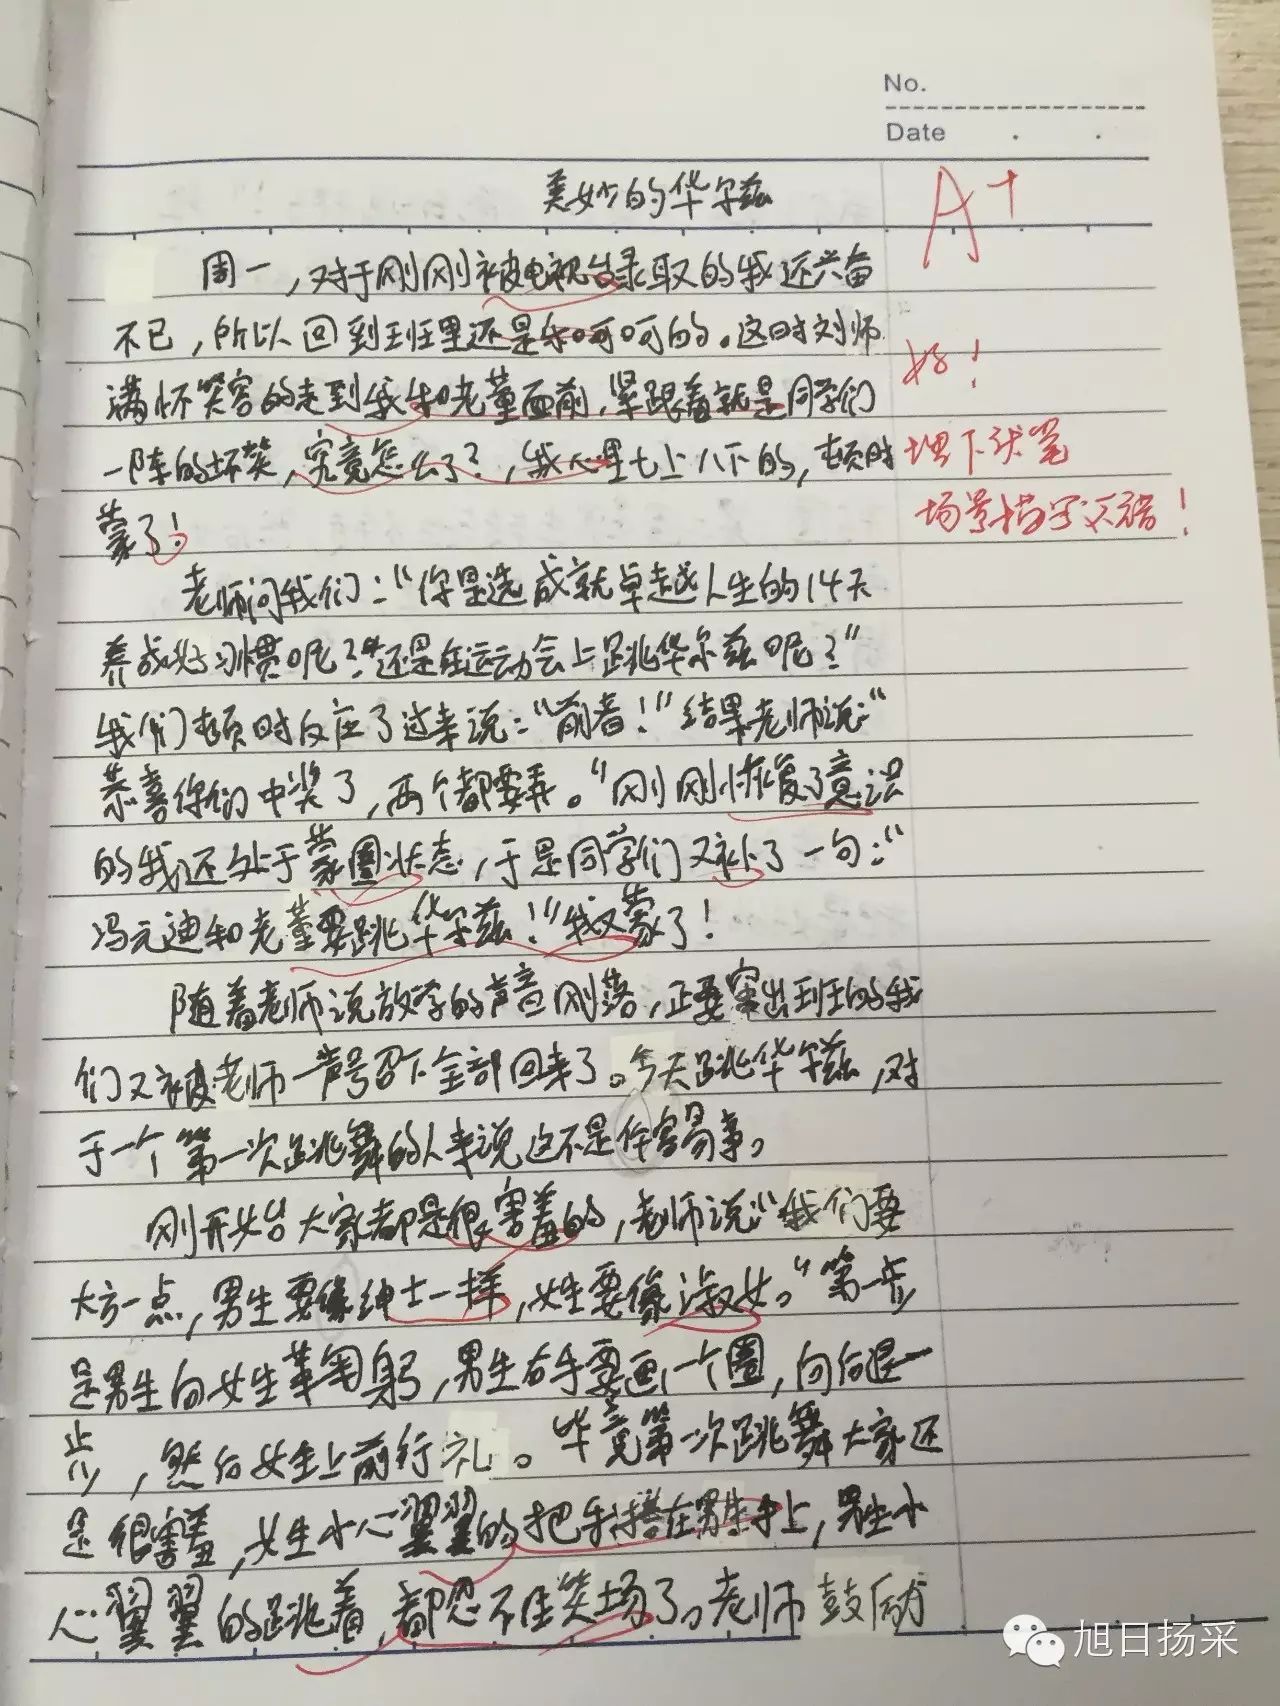 No.
Date
美妙的华尔兹
A+
周一，对于刚刚被电视台录取的我还兴奋
不已，所以回到班里还是乐呵呵的。这时刘师
好！
满怀笑容的走到我和老董面前，紧跟着就是同学们
一阵的坏笑，究竟怎么了？，我心里七上八下的，顿时
埋下伏笔
蒙了！
场景描写不错！
老师问我们：“你是选成就卓越人生的14天
养成好习惯呢？还是在运动会上跳华尔兹呢？”
我们顿时反应了过来说：“前者！”结果老师说：“
恭喜你们中奖了，两个都要弄。”刚刚恢复了意识
的我还处于蒙圈状态，于是同学们又补了一句：“
冯元迪和老董要跳华尔兹！”我又蒙了！
随着老师说放学的声音刚落，正要窜出班的我
们又被老师一声号召下全部回来了。今天跳华尔兹，对
于一个第一次跳舞的人来说这不是件容易事。
刚开始大家都是很害羞的，老师说：“我们要
大方一点，男生要像绅士一样，女生要像淑女。”第一步
是男生向女生鞠躬，男生右手要画一个圈，向后退一
步，然后女生上前行礼。毕竟第一次跳舞大家还
是很害羞，女生小心翼翼的把手搭在男生手上，男生小
心翼翼的跳着，都忍不住笑场了。老师鼓励
旭日扬采